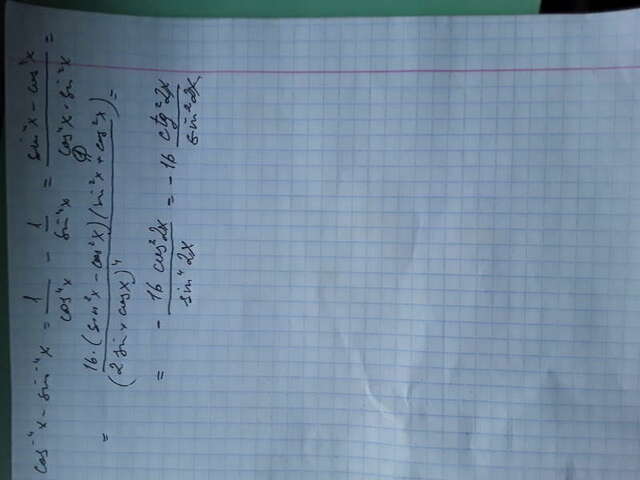 cos⁻⁴x - sin⁻⁴x = 1/cos⁴x - 1/sin⁴x = (sin⁴x - cos⁴x)/(cos⁴x · sin⁴x) =
= 16·(sin²x - cos²x)(sin²x + cos²x)/(2 sin x cos x)⁴ =
= - 16 cos²2x/sin⁴2x = - 16 ctg²2x/sin²2x